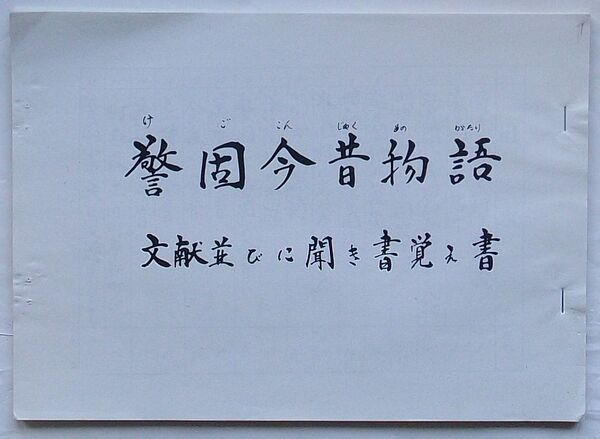 けごこんじゃくものがたり
警固今昔物語
文献並びに聞き書覚え書